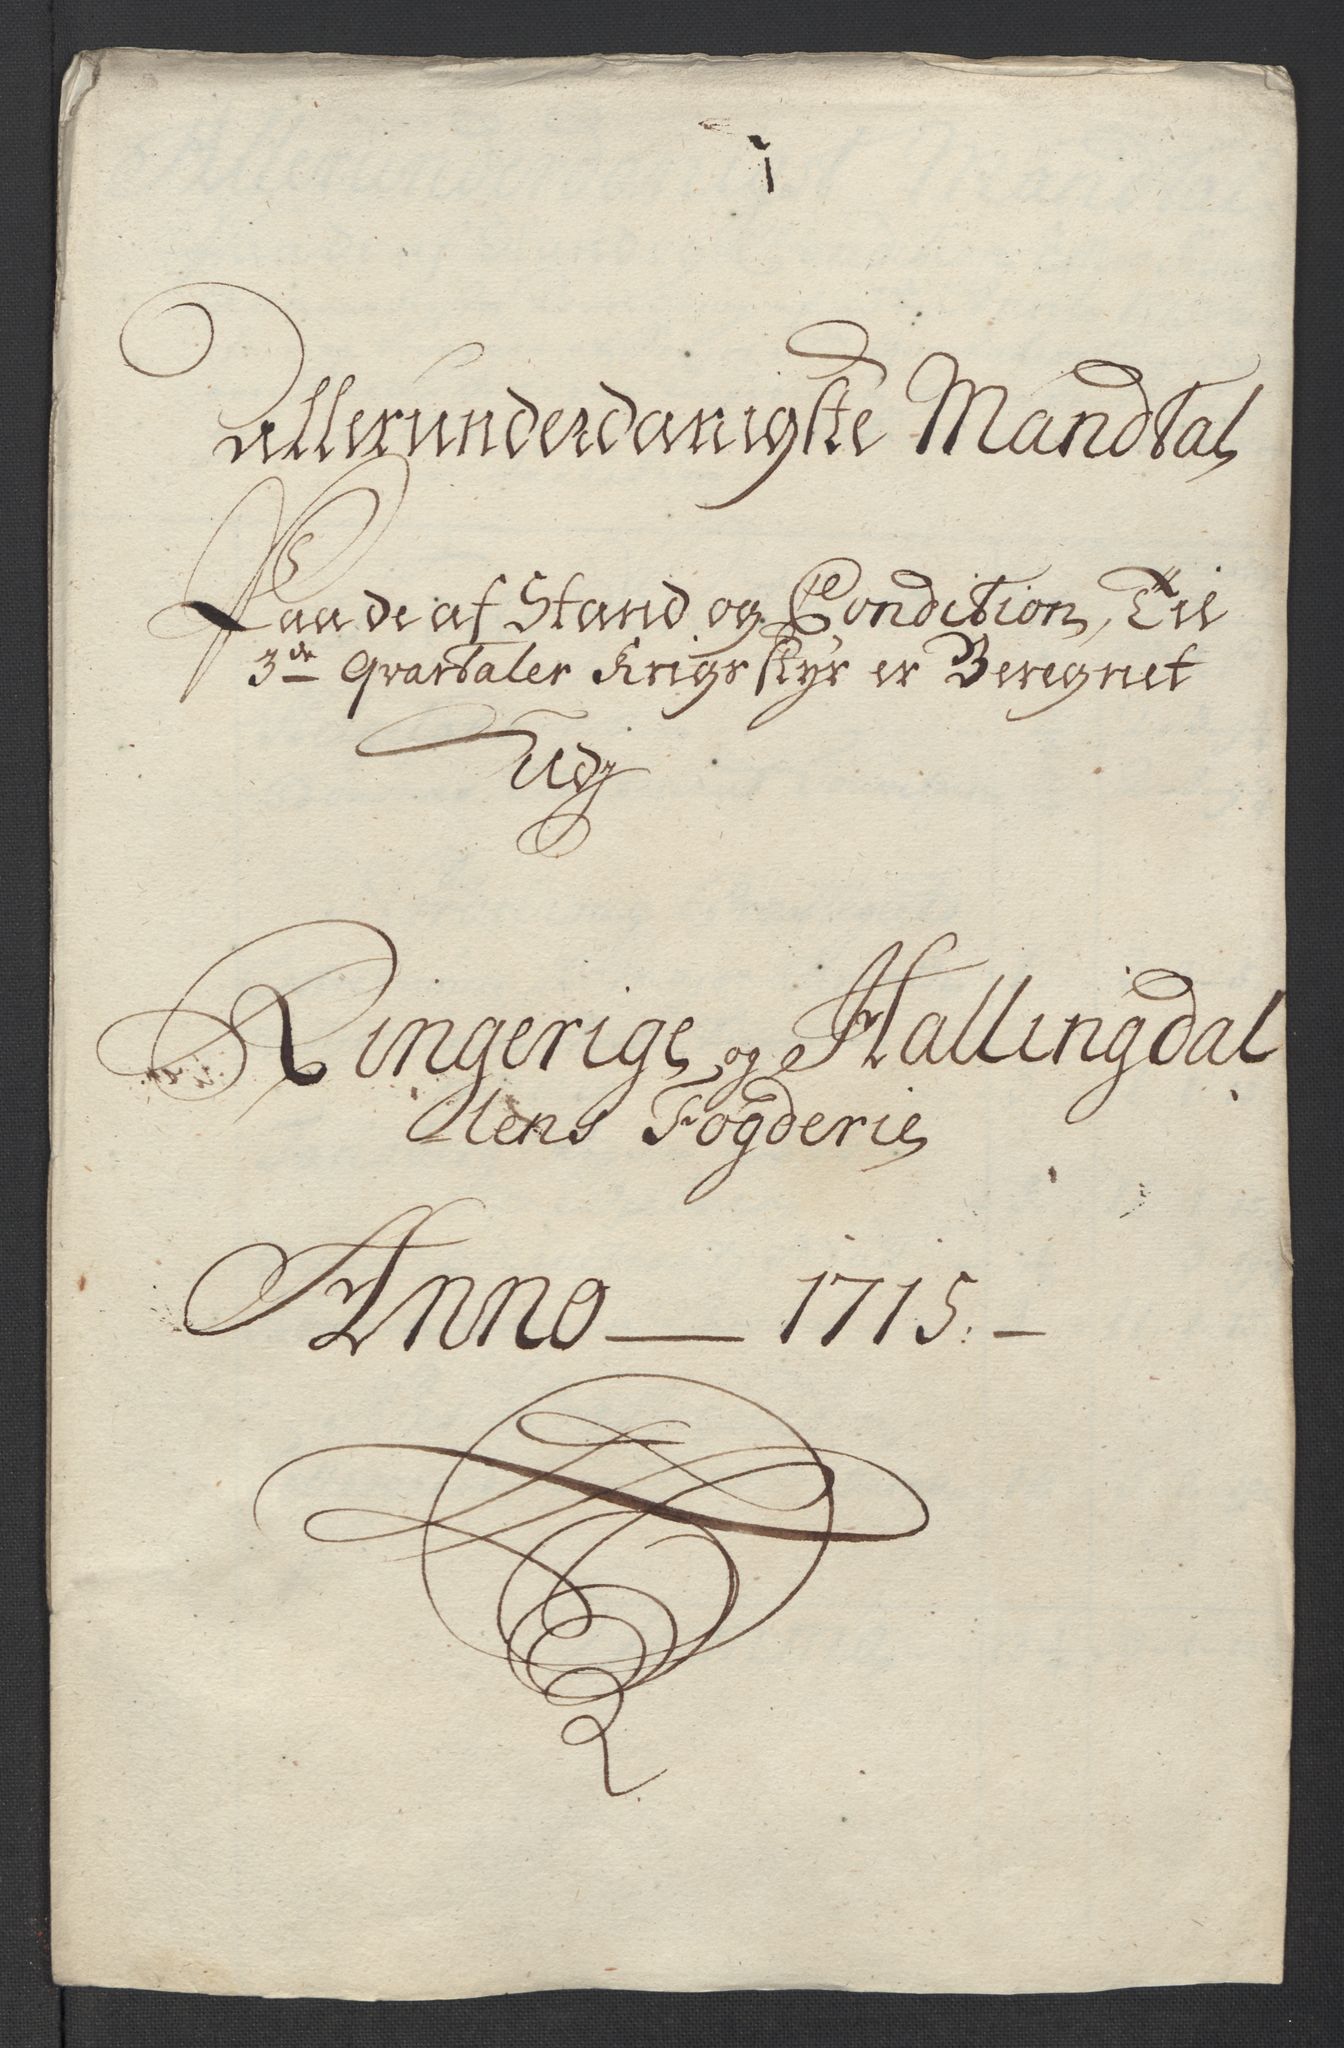 1
Allerunderdanigste Mandtal
Paa de af Stand og Condition, Til
3de Qvartaler Krigsstyr er Beregnet
Udj
Ringerige og Hallingdal
lens Fogderie
Anno — 1715. —